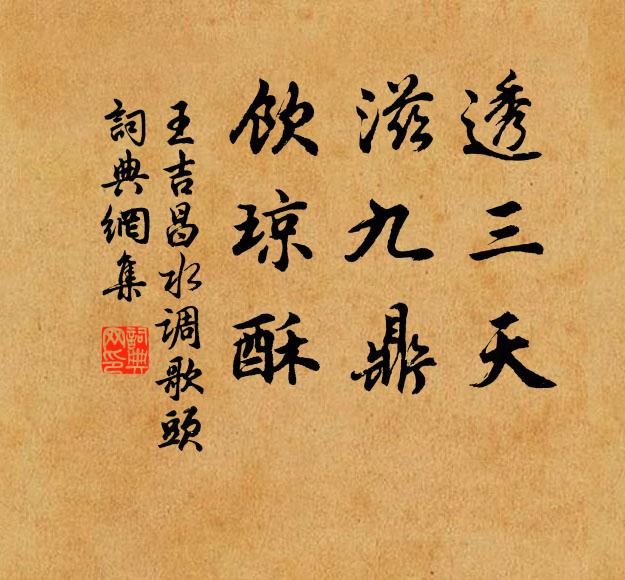 透三天
滋九鼎
饮琼酥
王吉昌水调歌头
詞典網集
詞典网印